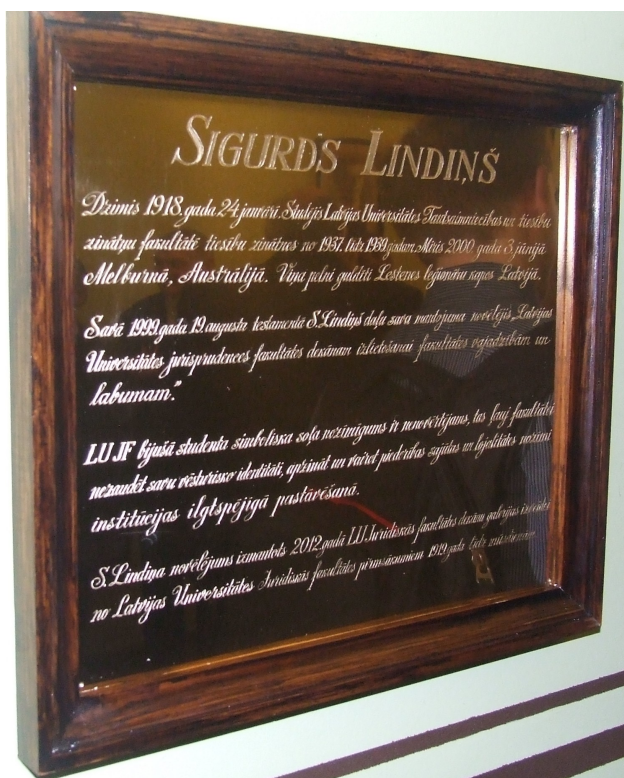 SIGURDS LINDIŅŠ
Dzimis 1918. gada 24. janvārī. Studējis Latvijas Universitātes Tautsaimniecības un tiesību
zinātņu fakultātē tiesību zinātnes no 1937. līdz 1939. gadam. Miris 2000. gada 3. jūnijā
Melburnā, Austrālijā. Viņa pelni guldīti Lestenes leģionāru kapos Latvijā.
Savā 1999. gada 19. augusta testamentā S. Lindiņš daļu sava mantojuma novēlējis „Latvijas
Universitātes jurisprudences fakultātes dekānam izlietošanai fakultātes vajadzībām un
labumam."
LU JF bijušā studenta simboliska soļa nozīmīgums ir nenovērtējams, tas ļauj fakultātei
nezaudēt savu vēsturisko identitāti, apzināt un vairot piederības sajūtas un lojalitātes nozīmi
institūcijas ilgtspējīgā pastāvēšanā.
S. Lindiņa novēlējums izmantots 2012. gadā LU Juridiskās fakultātes dekānu galerijas izveidei
no Latvijas Universitātes Juridiskās fakultātes pirmsākumiem 1919. gadā līdz mūsdienām.